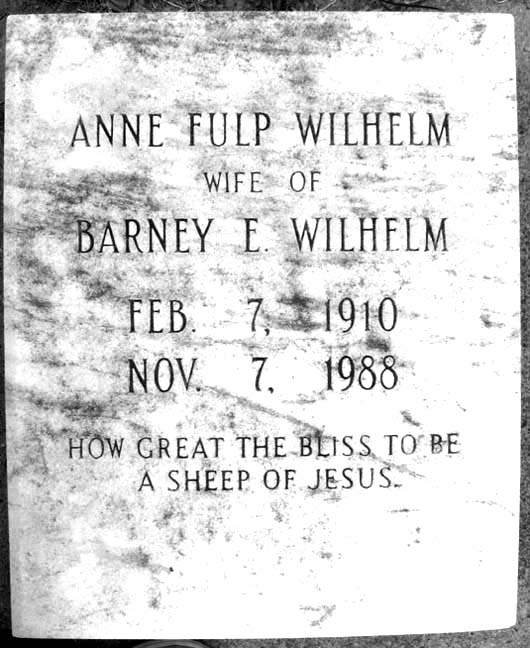 ANNE FULP WILHELM
WIFE OF
BARNEY E. WILHELM
FEB. 7, 1910
NOV. 7, 1988
HOW GREAT THE BLISS TO BE
A SHEEP OF JESUS.